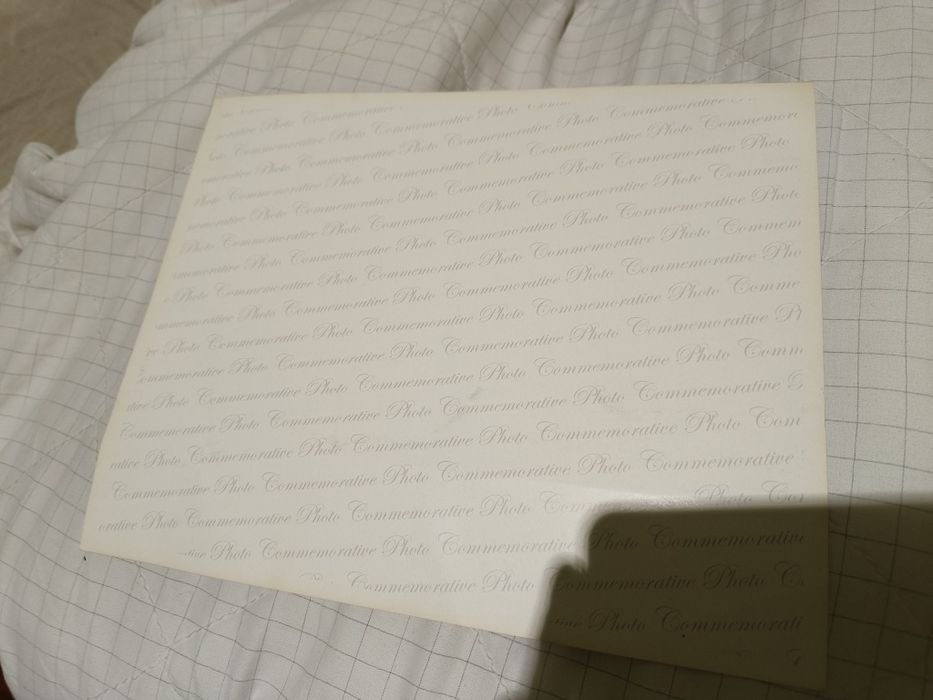 Commemorative
orative Photo Commemorative Photo Commemorative
Photo Commemorative Photo Commemorative Photo Commemor
morative Photo Commemorative Photo Commemorative Photo
Photo Commemorative Photo Commemorative Photo Commemo
mmemorative Photo Commemorative Photo Commemorative Photo
Photo Commemorative Photo Commemorative Photo Commem
ommemorative Photo Commemorative Photo Commemorative Pho
Photo Commemorative Photo Commemorative Photo Comme
mmemorative Photo Commemorative Photo Commemorative Ph
ve Photo Commemorative Photo Commemorative Photo Comm
ommemorative Photo Commemorative Photo Commemorative
ative Photo Commemorative Photo Commemorative Photo Com
Commemorative Photo Commemorative Photo Commemorative
rative Photo Commemorative Photo Commemorative Photo Com
Commemorative Photo Commemorative Photo Commemorative
orative Photo Commemorative Photo Commemorative Photo Co
tive Photo Commemorative Photo Commemorative
Commemorative Photo Commemorati